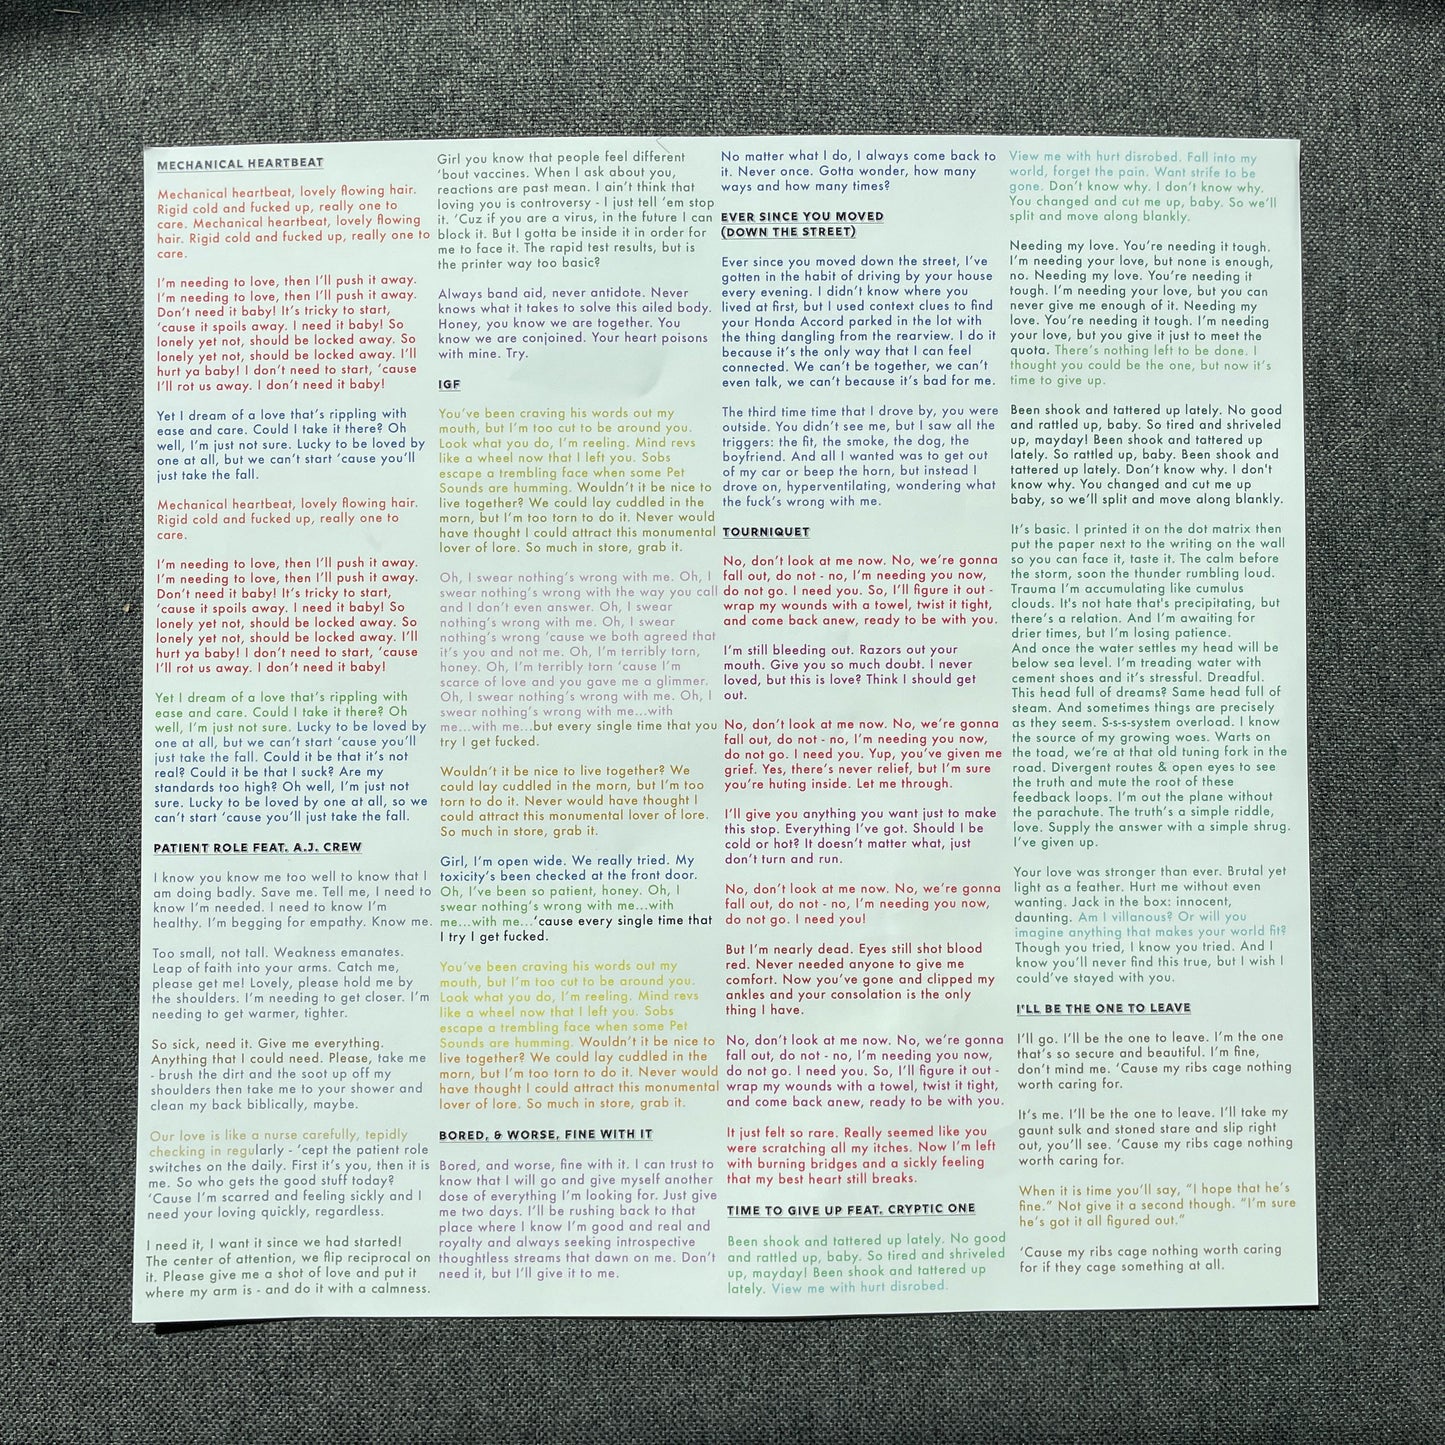 MECHANICAL HEARTBEAT
Mechanical heartbeat, lovely flowing hair.
Rigid cold and fucked up, really one to
care. Mechanical heartbeat, lovely flowing
hair. Rigid cold and fucked up, really one to
care.
I'm needing to love, then I'll push it away.
I'm needing to love, then I'll push it away.
Don't need it baby! It's tricky to start,
'cause it spoils away. I need it baby! So
lonely yet not, should be locked away. So
lonely yet not, should be locked away. I'll
hurt ya baby! I don't need to start, 'cause
I'll rot us away. I don't need it baby!
Yet I dream of a love that's rippling with
ease and care. Could I take it there? Oh
well, I'm just not sure. Lucky to be loved by
one at all, but we can't start 'cause you'll
just take the fall.
Mechanical heartbeat, lovely flowing hair.
Rigid cold and fucked up, really one to
care.
I'm needing to love, then I'll push it away.
I'm needing to love, then I'll push it away.
Don't need it baby! It's tricky to start,
'cause it spoils away. I need it baby! So
lonely yet not, should be locked away. So
lonely yet not, should be locked away. I'll
hurt ya baby! I don't need to start, 'cause
I'll rot us away. I don't need it baby!
Yet I dream of a love that's rippling with
ease and care. Could I take it there? Oh
well, I'm just not sure. Lucky to be loved by
one at all, but we can't start 'cause you'll
just take the fall. Could it be that it's not
real? Could it be that I suck? Are my
standards too high? Oh well, I'm just not
sure. Lucky to be loved by one at all, so we
can't start 'cause you'll just take the fall.
PATIENT ROLE FEAT. A.J. CREW
I know you know me too well to know that I
am doing badly. Save me. Tell me, I need to
know I'm needed. I need to know I'm
healthy. I'm begging for empathy. Know me.
Too small, not tall. Weakness emanates.
Leap of faith into your arms. Catch me,
please get me! Lovely, please hold me by
the shoulders. I'm needing to get closer. I'm
needing to get warmer, tighter.
So sick, need it. Give me everything.
Anything that I could need. Please, take me
- brush the dirt and the soot up off my
shoulders then take me to your shower and
clean my back biblically, maybe.
Our love is like a nurse carefully, tepidly
checking in regularly - 'cept the patient role
switches on the daily. First it's you, then it is
me. So who gets the good stuff today?
'Cause I'm scarred and feeling sickly and I
need your loving quickly, regardless.
I need it, I want it since we had started!
The center of attention, we flip reciprocal on
it. Please give me a shot of love and put it
where my arm is - and do it with a calmness.
Girl you know that people feel different
'bout vaccines. When I ask about you,
reactions are past mean. I ain't think that
loving you is controversy - I just tell 'em stop
it. 'Cuz if you are a virus, in the future I can
block it. But I gotta be inside it in order for
me to face it. The rapid test results, but is
the printer way too basic?
Always band aid, never antidote. Never
knows what it takes to solve this ailed body.
Honey, you know we are together. You
know we are conjoined. Your heart poisons
with mine. Try.
IGF
You've been craving his words out my
mouth, but I'm too cut to be around you.
Look what you do, I'm reeling. Mind revs
like a wheel now that I left you. Sobs
escape a trembling face when some Pet
Sounds are humming. Wouldn't it be nice to
live together? We could lay cuddled in the
morn, but I'm too torn to do it. Never would
have thought I could attract this monumental
lover of lore. So much in store, grab it.
Oh, I swear nothing's wrong with me. Oh, I
swear nothing's wrong with the way you call
and I don't even answer. Oh, I swear
nothing's wrong with me. Oh, I swear
nothing's wrong 'cause we both agreed that
it's you and not me. Oh, I'm terribly torn,
honey. Oh, I'm terribly torn 'cause I'm
scarce of love and you gave me a glimmer.
Oh, I swear nothing's wrong with me. Oh, I
swear nothing's wrong with me...with
me...with me...but every single time that you
try I get fucked.
Wouldn't it be nice to live together? We
could lay cuddled in the morn, but I'm too
torn to do it. Never would have thought I
could attract this monumental lover of lore.
So much in store, grab it.
Girl, I'm open wide. We really tried. My
toxicity's been checked at the front door.
Oh, I've been so patient, honey. Oh, I
swear nothing's wrong with me...with
me...with me...'cause every single time that
I try I get fucked.
You've been craving his words out my
mouth, but I'm too cut to be around you.
Look what you do, I'm reeling. Mind revs
like a wheel now that I left you. Sobs
escape a trembling face when some Pet
Sounds are humming. Wouldn't it be nice to
live together? We could lay cuddled in the
morn, but I'm too torn to do it. Never would
have thought I could attract this monumental
lover of lore. So much in store, grab it.
BORED, & WORSE, FINE WITH IT
Bored, and worse, fine with it. I can trust to
know that I will go and give myself another
dose of everything I'm looking for. Just give
me two days. I'll be rushing back to that
place where I know I'm good and real and
royalty and always seeking introspective
thoughtless streams that dawn on me. Don't
need it, but I'll give it to me.
No matter what I do, I always come back to
it. Never once. Gotta wonder, how many
ways and how many times?
EVER SINCE YOU MOVED
(DOWN THE STREET)
Ever since you moved down the street, I've
gotten in the habit of driving by your house
every evening. I didn't know where you
lived at first, but I used context clues to find
your Honda Accord parked in the lot with
the thing dangling from the rearview. I do it
because it's the only way that I can feel
connected. We can't be together, we can't
even talk, we can't because it's bad for me.
The third time time that I drove by, you were
outside. You didn't see me, but I saw all the
triggers: the fit, the smoke, the dog, the
boyfriend. And all I wanted was to get out
of my car or beep the horn, but instead I
drove on, hyperventilating, wondering what
the fuck's wrong with me.
TOURNIQUET
No, don't look at me now. No, we're gonna
fall out, do not - no, I'm needing you now,
do not go. I need you. So, I'll figure it out -
wrap my wounds with a towel, twist it tight,
and come back anew, ready to be with you.
I'm still bleeding out. Razors out your
mouth. Give you so much doubt. I never
loved, but this is love? Think I should get
out.
No, don't look at me now. No, we're gonna
fall out, do not - no, I'm needing you now,
do not go. I need you. Yup, you've given me
grief. Yes, there's never relief, but I'm sure
you're huting inside. Let me through.
I'll give you anything you want just to make
this stop. Everything I've got. Should I be
cold or hot? It doesn't matter what, just
don't turn and run.
No, don't look at me now. No, we're gonna
fall out, do not - no, I'm needing you now,
do not go. I need you!
But I'm nearly dead. Eyes still shot blood
red. Never needed anyone to give me
comfort. Now you've gone and clipped my
ankles and your consolation is the only
thing I have.
No, don't look at me now. No, we're gonna
fall out, do not - no, I'm needing you now,
do not go. I need you. So, I'll figure it out -
wrap my wounds with a towel, twist it tight,
and come back anew, ready to be with you.
It just felt so rare. Really seemed like you
were scratching all my itches. Now I'm left
with burning bridges and a sickly feeling
that my best heart still breaks.
TIME TO GIVE UP FEAT. CRYPTIC ONE
Been shook and tattered up lately. No good
and rattled up, baby. So tired and shriveled
up, mayday! Been shook and tattered up
lately. View me with hurt disrobed.
View me with hurt disrobed. Fall into my
world, forget the pain. Want strife to be
gone. Don't know why. I don't know why.
You changed and cut me up, baby. So we'll
split and move along blankly.
Needing my love. You're needing it tough.
I'm needing your love, but none is enough,
no. Needing my love. You're needing it
tough. I'm needing your love, but you can
never give me enough of it. Needing my
love. You're needing it tough. I'm needing
your love, but you give it just to meet the
quota. There's nothing left to be done. I
thought you could be the one, but now it's
time to give up.
Been shook and tattered up lately. No good
and rattled up, baby. So tired and shriveled
up, mayday! Been shook and tattered up
lately. So rattled up, baby. Been shook and
tattered up lately. Don't know why. I don't
know why. You changed and cut me up
baby, so we'll split and move along blankly.
It's basic. I printed it on the dot matrix then
put the paper next to the writing on the wall
so you can face it, taste it. The calm before
the storm, soon the thunder rumbling loud.
Trauma I'm accumulating like cumulus
clouds. It's not hate that's precipitating, but
there's a relation. And I'm awaiting for
drier times, but I'm losing patience.
And once the water settles my head will be
below sea level. I'm treading water with
cement shoes and it's stressful. Dreadful.
This head full of dreams? Same head full of
steam. And sometimes things are precisely
as they seem. S-s-s-system overload. I know
the source of my growing woes. Warts on
the toad, we're at that old tuning fork in the
road. Divergent routes & open eyes to see
the truth and mute the root of these
feedback loops. I'm out the plane without
the parachute. The truth's a simple riddle,
love. Supply the answer with a simple shrug.
I've given up.
Your love was stronger than ever. Brutal yet
light as a feather. Hurt me without even
wanting. Jack in the box: innocent,
daunting. Am I villanous? Or will you
imagine anything that makes your world fit?
Though you tried, I know you tried. And I
know you'll never find this true, but I wish I
could've stayed with you.
I'LL BE THE ONE TO LEAVE
I'll go. I'll be the one to leave. I'm the one
that's so secure and beautiful. I'm fine,
don't mind me. 'Cause my ribs cage nothing
worth caring for.
It's me. I'll be the one to leave. I'll take my
gaunt sulk and stoned stare and slip right
out, you'll see. 'Cause my ribs cage nothing
worth caring for.
When it is time you'll say, "I hope that he's
fine." Not give it a second though. "I'm sure
he's got it all figured out."
'Cause my ribs cage nothing worth caring
for if they cage something at all.